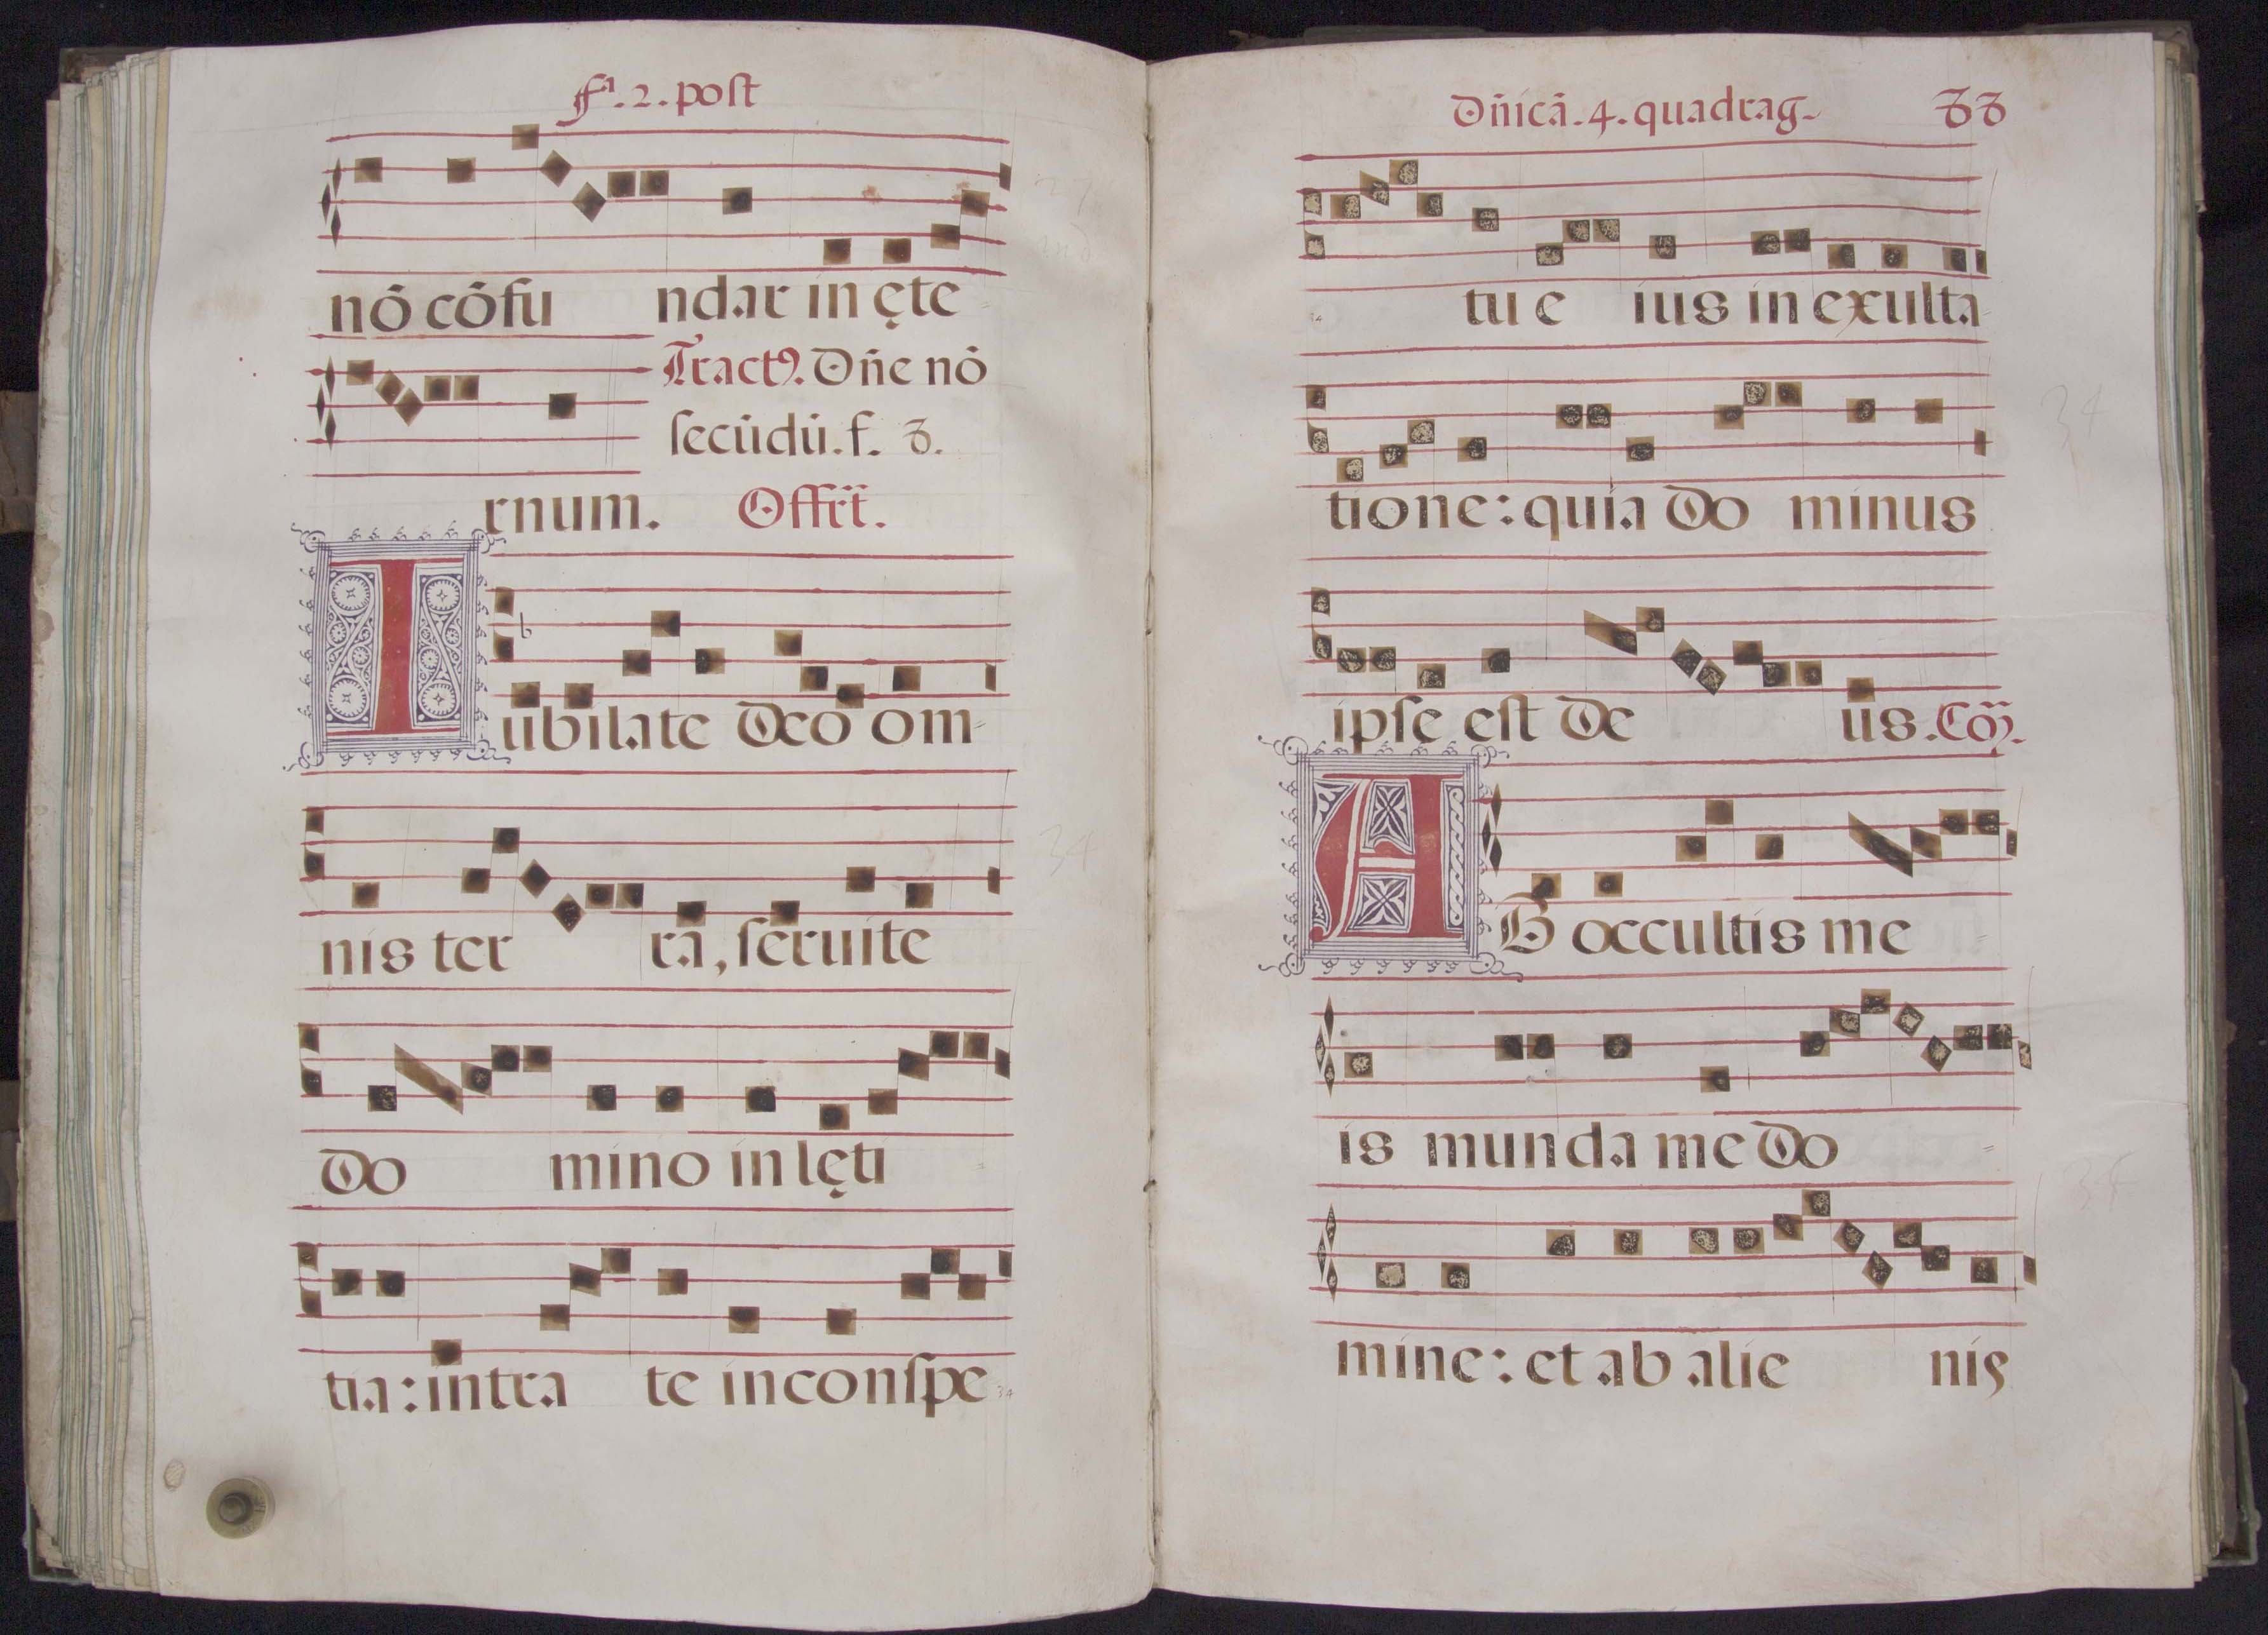 fª. 2. post
nō cōfu ndar in ęte-
Tract9. Dñe nō
secūdū. f. 8.
rnum. Offrt.
Iubilate Deo om-
nis terra, seruite
Domino in lęti
tia: intrate in conspe
Dñicā. 4. quadrag. 88
tu eius in exulta-
tione: quia Dominus
ipse est Deus. Cō.
AB occultis me-
is munda me Do-
mine: et ab alienis